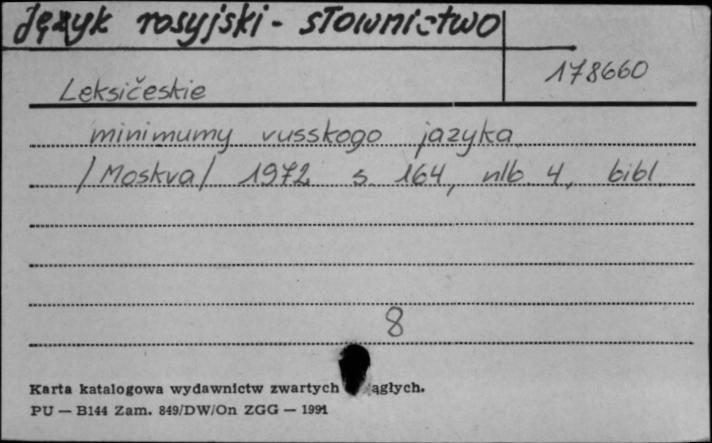 Język rosyjski - słownictwo
178660
Leksičeskie
minimumy russkogo jazyka.
/Moskva/ 1972 s. 164, nlb. 4, bibl.
8
Karta katalogowa wydawnictw zwartych ągłych.
PU — B144 Zam. 849/DW/On ZGG — 1991